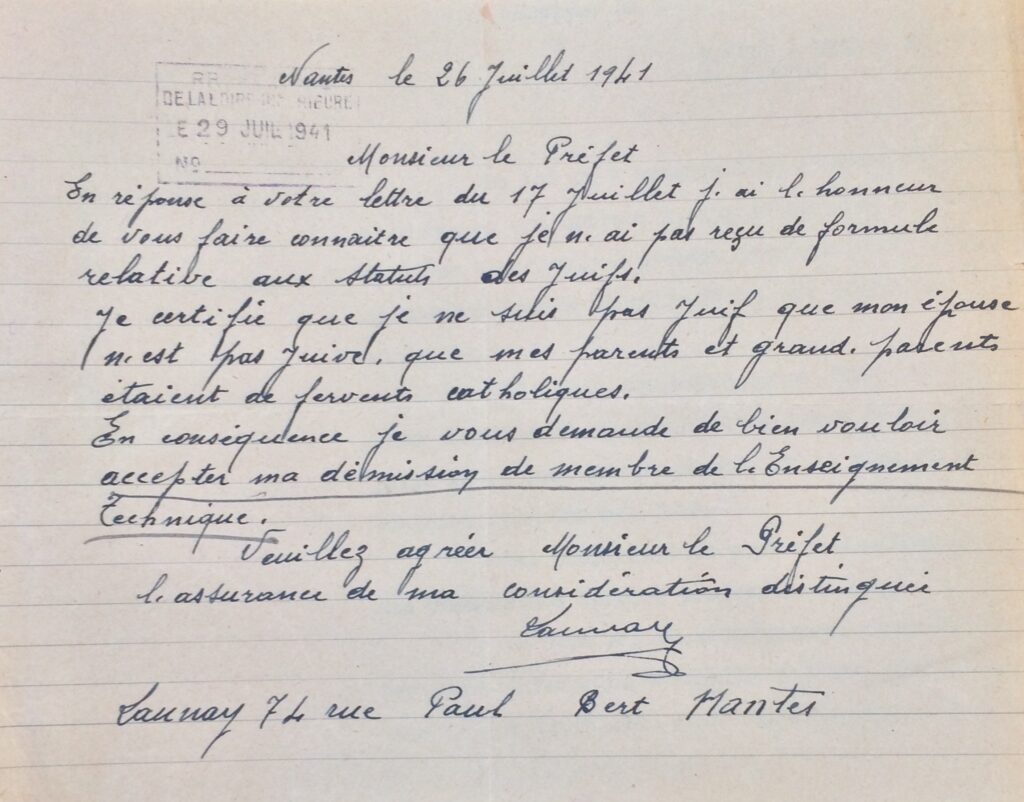 Nantes le 26 Juillet 1941
DE LA LOIRE INFERIEURE
LE 29 JUIL 1941
NO
Monsieur le Préfet
En réponse à votre lettre du 17 Juillet j. ai l. honneur
de vous faire connaitre que je n. ai pas reçu de formule
relative aux Statuts des Juifs.
Je certifie que je ne suis pas Juif que mon épouse
n. est pas Juive. que mes parents et grand. parents
étaient de fervents catholiques.
En conséquence je vous demande de bien vouloir
accepter ma démission de membre de l. Enseignement
Technique.
Veuillez agréer Monsieur le Préfet
l. assurance de ma considération distinguée
Launay
Launay 74 rue Paul Bert Nantes